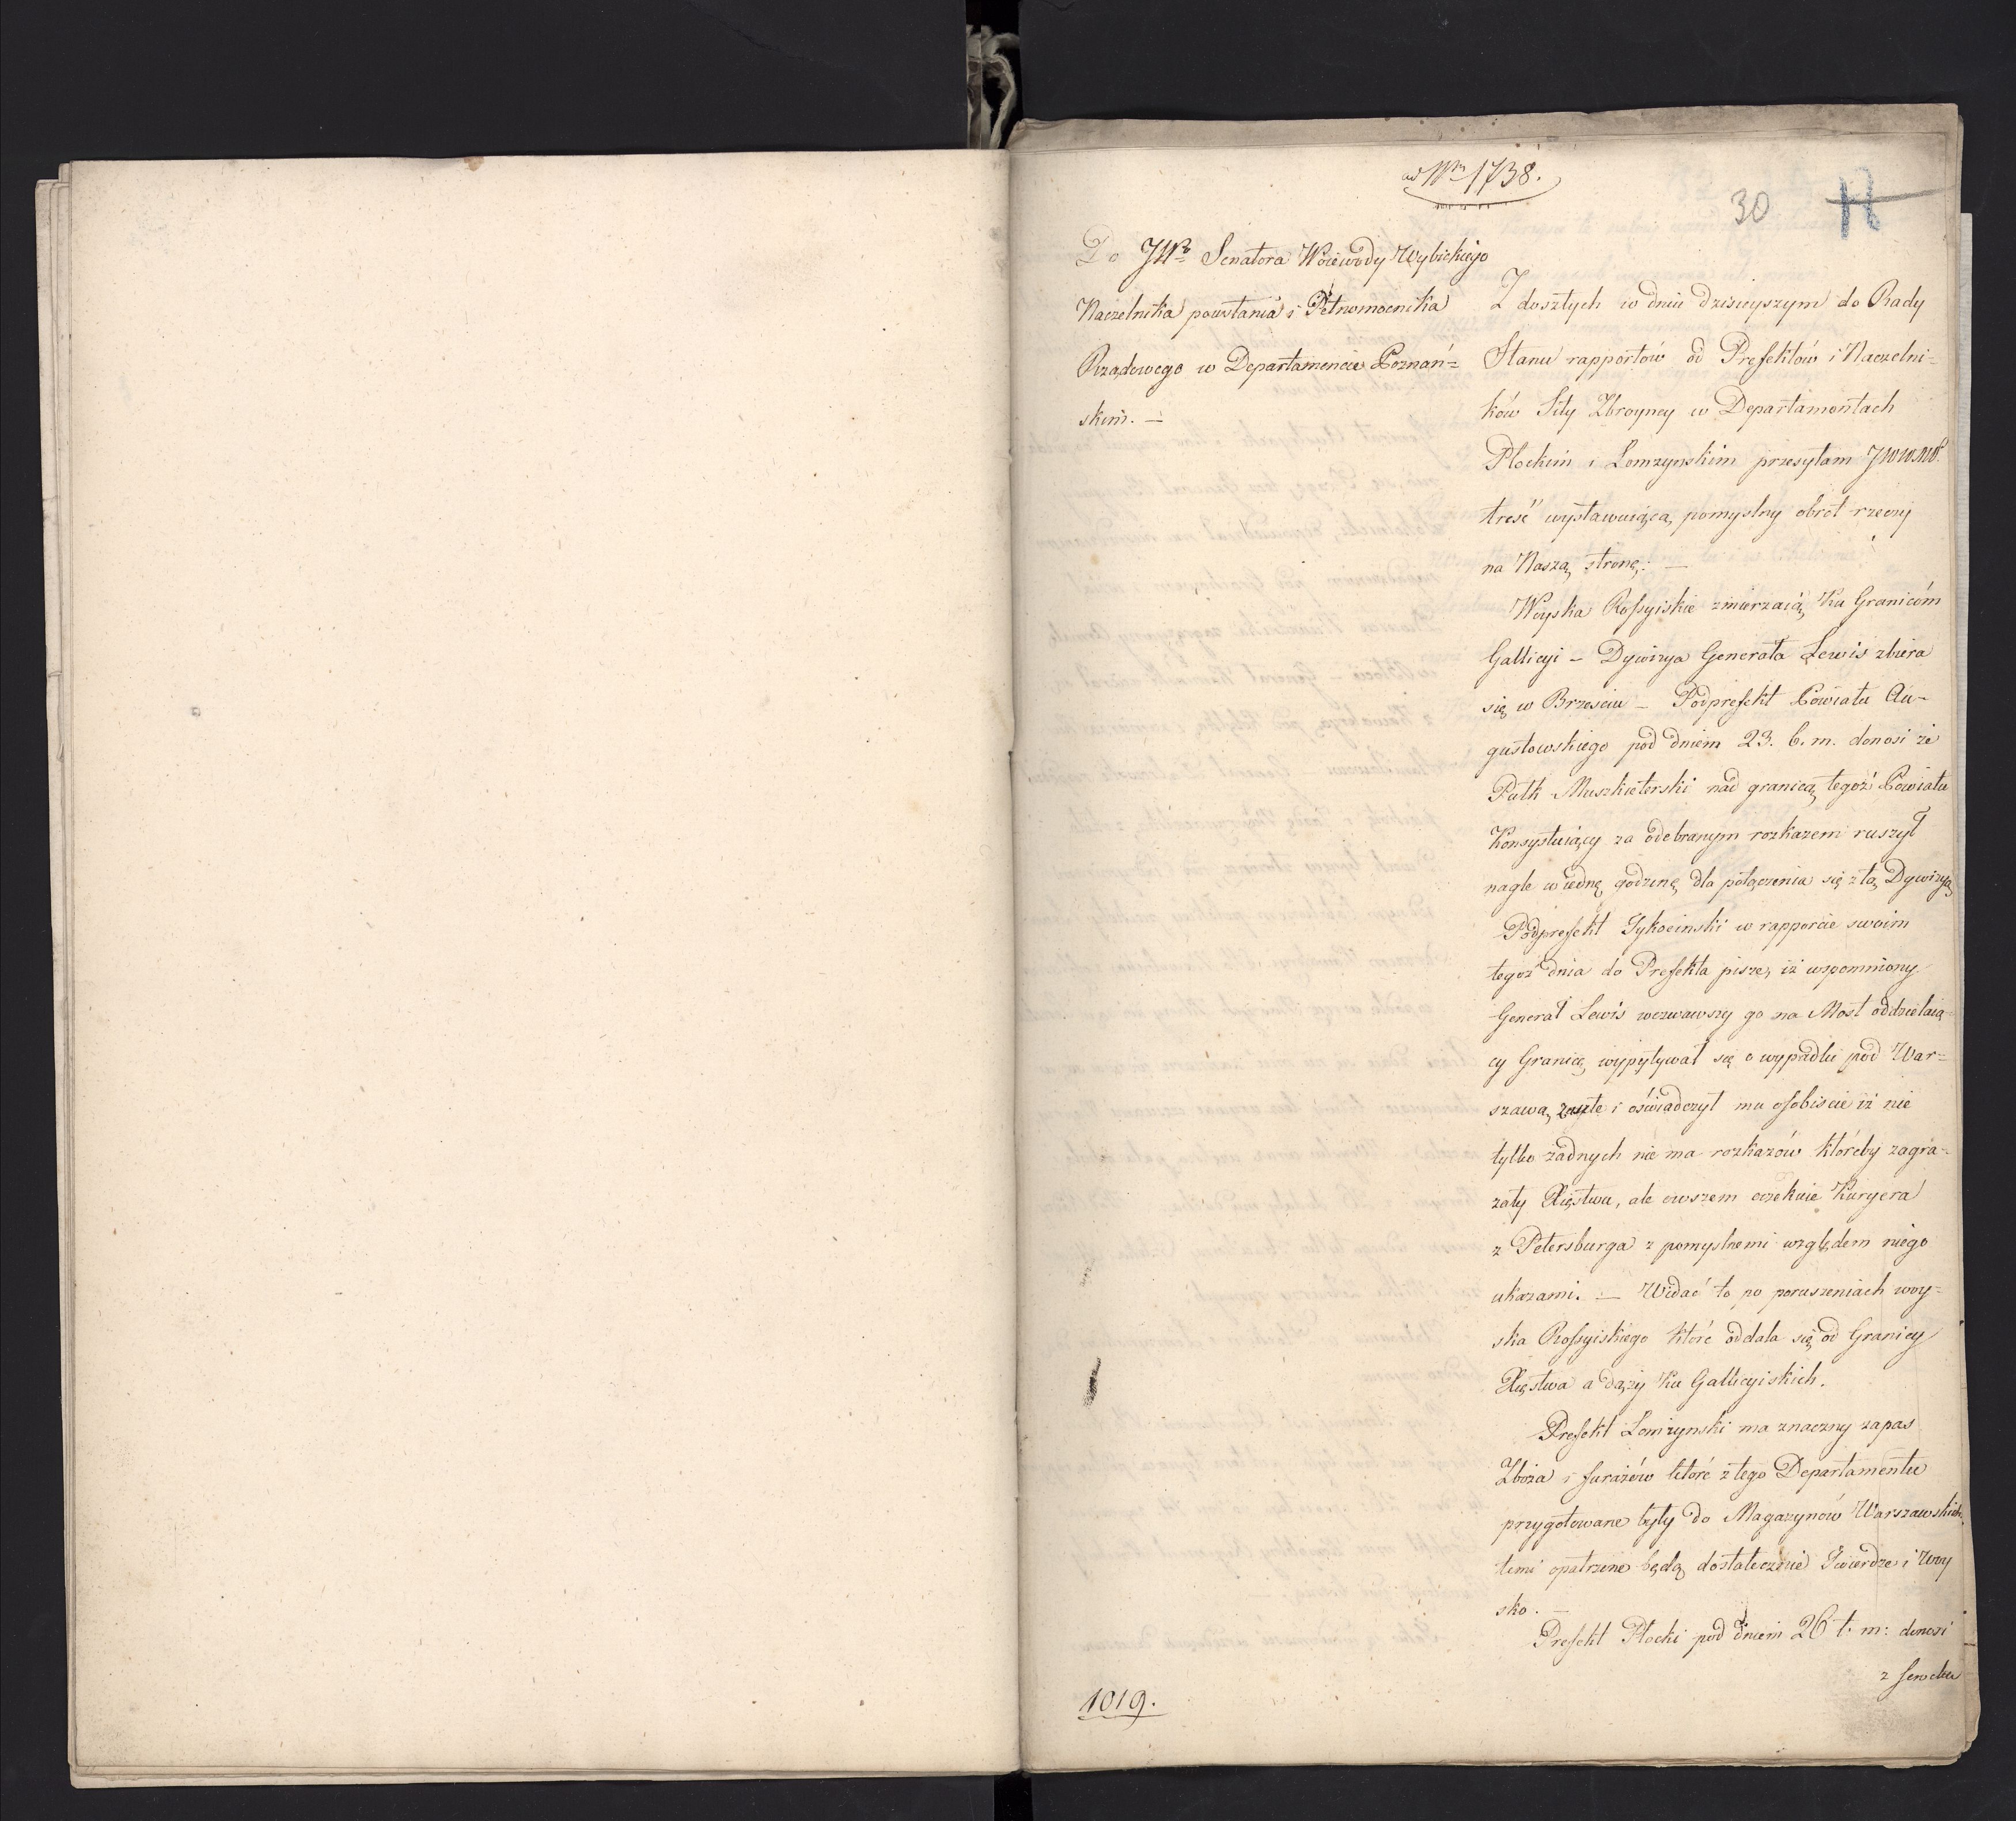 ad Nrm 1738.
30
Do JWo Senatora Woiewody Wybickiego
Naczelnika powstania i Pełnomocnika
Rządowego w Departamencie Poznań=
skim. —
Z doszłych w dniu dzisieyszym do Rady
Stanu rapportów od Prefektów i Naczelni-
ków Siły Zbroyney w Departamentach
Płockim i Łomzynskim przesyłam JWWMP.
treść wystawuiącą pomyslny obrot rzeczy
na Naszą stronę: —
Woyska Rossyiskie zmierzaią ku Granicóm
Gallicyi – Dywizya Generała Lewis zbiera
się w Brzesciu – Podprefekt Powiatu Au-
gustowskiego pod dniem 23. b. m. donosi że
Pułk Muszkieterski nad granicą tegoż Powiatu
Konsystuiący za odebranym rozkazem ruszył
nagle w iedną godzinę dla połączenia się z tą Dywizyą
Podprefekt Tykocinski w rapporcie swoim
tegoż dnia do Prefekta pisze, iż wspomniony
Generał Lewis wezwawszy go na Most oddzielaią-
cy Granicę wypytywał się o wypadku pod War=
szawą i oświadczył mu osobiscie iż nie
tylko żadnych nie ma rozkazów któreby zagra-
zały Xięstwu, ale owszem oczekuie Kuryera
z Petersburga z pomyslnemi względem niego
ukazami. — Widać to po poruszeniach woy=
ska Rossyiskiego które oddala się od Granicy
Xięstwa a dąży ku Gallicyiskich.
Prefekt Łomzynski ma znaczny zapas
Zboża i furażów które z tego Departamentu
przygotowane były do Magazynów Warszawskich
temi opatrzone będą dostatecznie Twierdze i Woy
sko. —
Prefekt Płocki pod dniem 26 t. m: donosi
z
1019.